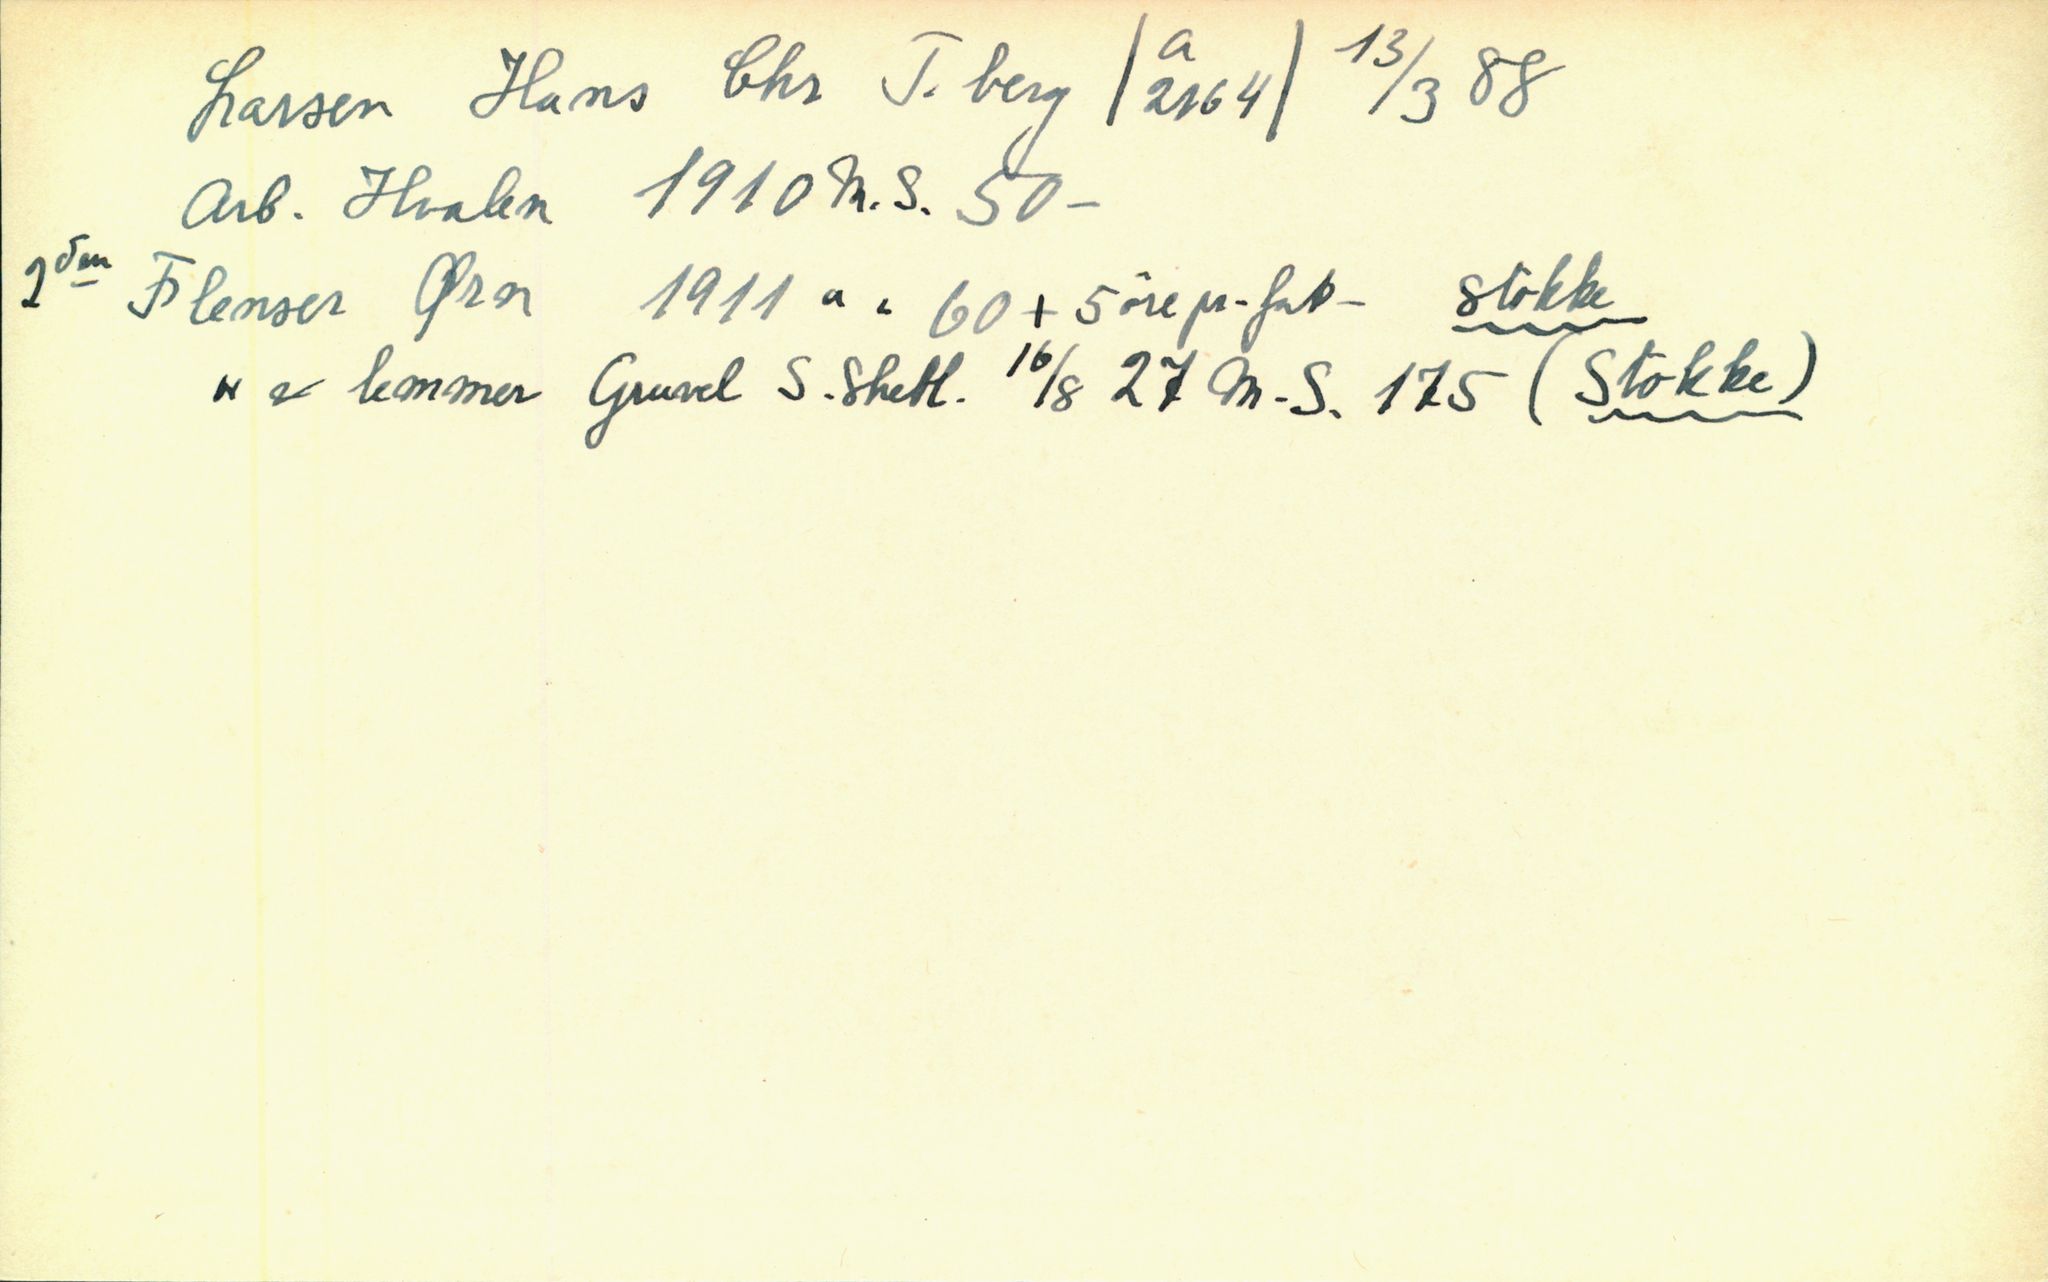 Larsen Hans Chr T.berg (a 2164) 13/3 88
Arb. Hvalen 1910 M.S. 50-
2den Flenser Ørn 1911 " " 60 + 5 öre pr. fat - Stokke
" & lemmer Gruvel S. Shetl. 16/8 27 M.S. 175 (Stokke)